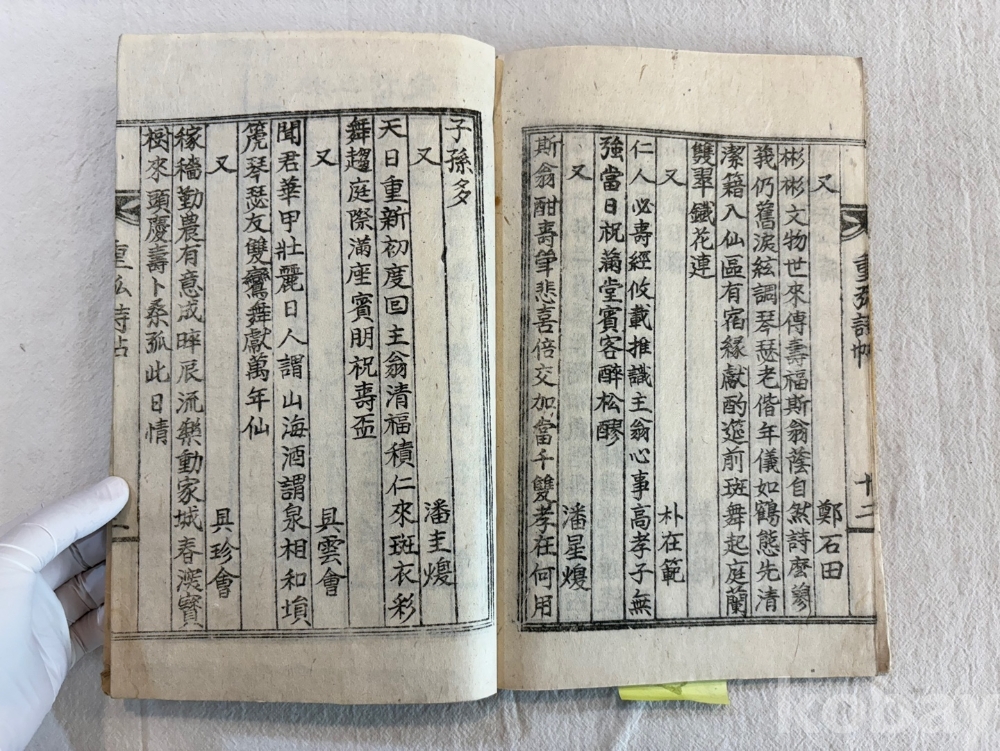 重弧詩帖
十二
又 鄭石田
彬彬文物世來傳壽福斯翁蔭自然詩廢蓼
莪仍舊淚絃調琴瑟老偕年儀如鶴態先清
潔籍入仙區有宿緣獻酌筵前班舞起庭蘭
雙翠鐵花連
又 朴在範
仁人必壽經攸載推識主翁心事高孝子無
強當日祝滿堂賓客醉松醪
又 潘星煖
斯翁酣壽筆悲喜倍交加當千雙孝在何用
子孫多
又 潘圭煖
天日重新初度回主翁清福積仁來斑衣彩
舞趨庭際滿座賓朋祝壽盃
又 具雲會
聞君華甲壯麗日人謂山海酒謂泉相和塤
篪琴瑟友雙鸞舞獻萬年仙
又 具珍會
稼穡勤農有意成晬辰流樂動家城春深寶
樹來頭慶壽卜桑弧此日情
重弘詩帖
kobay